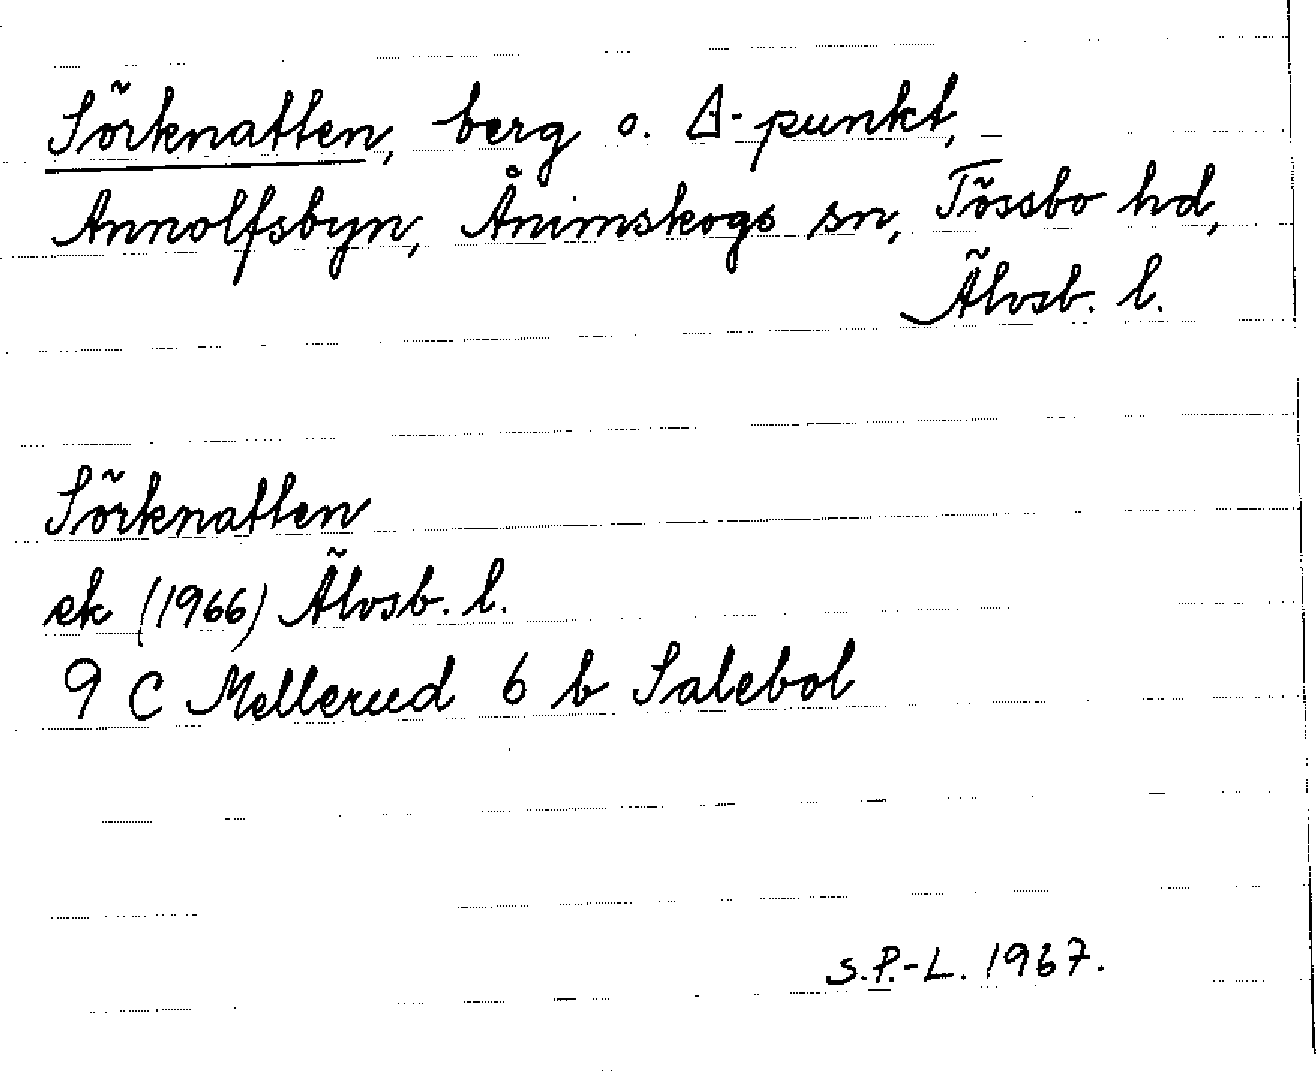 Sörknatten, berg o. Δ-punkt,
Annolfsbyn, Ånimskogs sn, Tössbo hd,
Älvsb. l.
Sörknatten
ek (1966) Älvsb. l.
9 C Mellerud 6 b Salebol
S.P.-L. 1967.